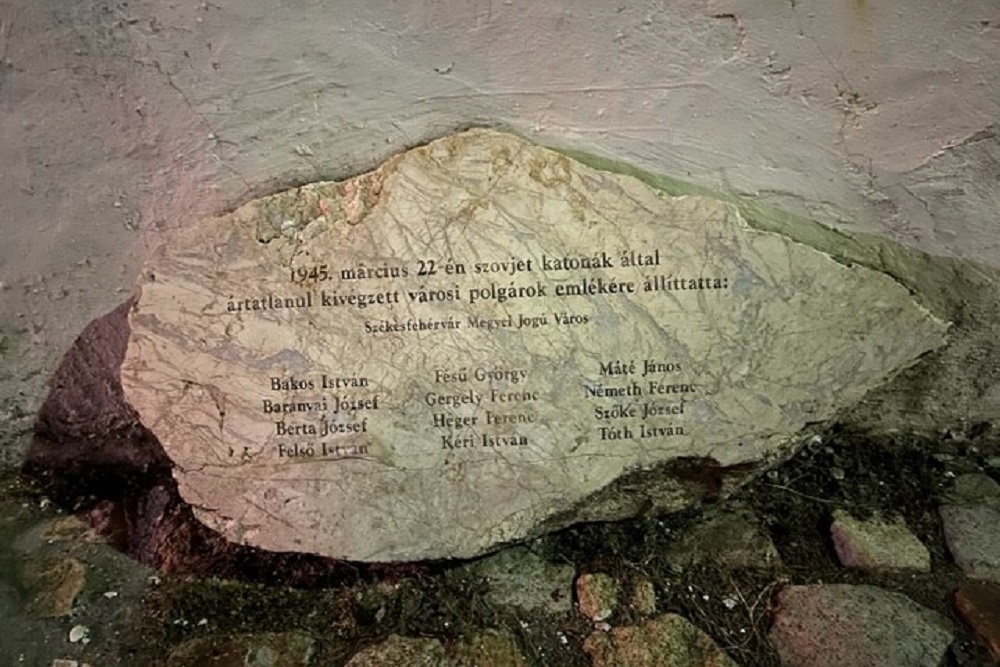 1945. március 22-én szovjet katonák által
ártatlanul kivégzett városi polgárok emlékére állíttatta:
Székesfehérvár Megyei Jogú Város
Bakos István
Baranyai József
Berta József
Felső István
Fésű György
Gergely Ferenc
Héger Ferenc
Kéri István
Máté János
Németh Ferenc
Szőke József
Tóth István